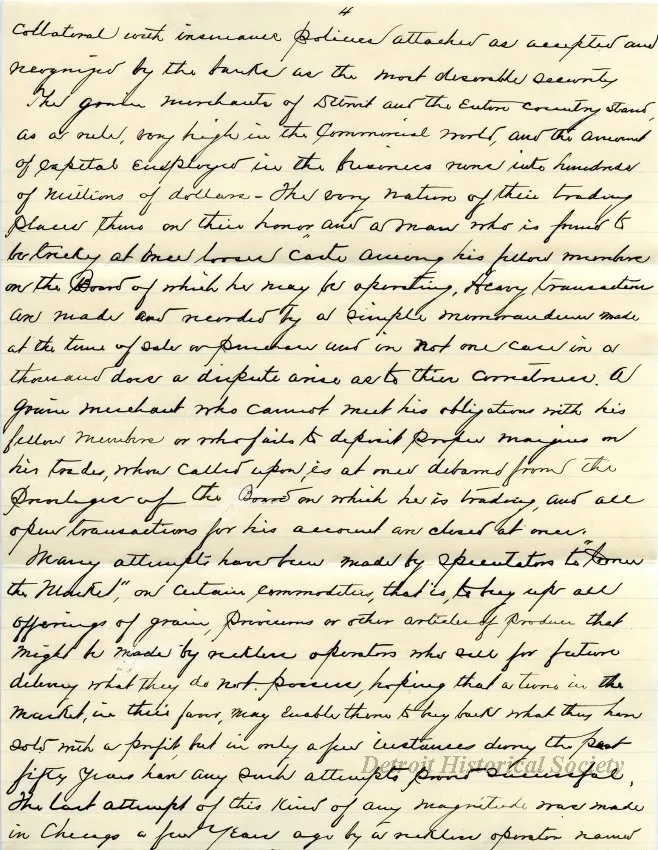 4
Collateral with insurance policies attached as accepted and
recognized by the banks as the most desirable security
The grain merchants of Detroit and the Entire country stand,
as a rule, very high in the Commercial world, and the amount
of capital employed in the business runs into hundreds
of Millions of dollars - The very nature of their trading
places them on their honor and a man who is found to
be tricky at once looses "caste among his fellow members
on the Board of which he may be operating. Heavy transactions
are made and recorded by a simple memorandum made
at the time of sale or purchase and in not one case in a
thousand does a dispute arise as to their correctness. A
grain merchant who cannot meet his obligations with his
fellow members or who fails to deposit proper margins on
his trades, when called upon, is at once debarred from the
Privileges of the Board on which he is trading, and all
open transactions for his account are closed at once.
Many attempts have been made by speculators to "Corner
the Market", on certain commodities, that is, to buy up all
offerings of grain, provisions or other articles of produce that
might be made by reckless operators who sell for future
delivery what they do not possess, hoping that a turn in the
Market, in their favor, may enable them to buy back what they have
sold with a profit, but in only a few instances during the past
fifty years have any such attempts proved successful.
The last attempt of this kind of any magnitude was made
in Chicago a few years ago by a reckless operator named
Detroit Historical Society